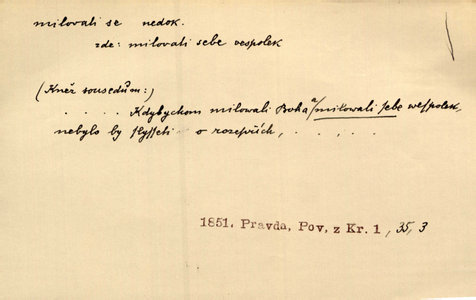 milovati se nedok.
zde: milovati sebe vespolek
(Kněz sousedům:)
. . . . Kdybychom milowali Boha a milowali sebe wespolek,
nebylo by slysseti o rozepřích, . . . .
1851. Pravda, Pov. z Kr. 1, 35, 3